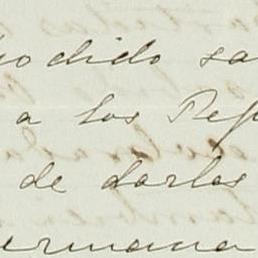 podido sa
a los Ref
de darlos
ermana